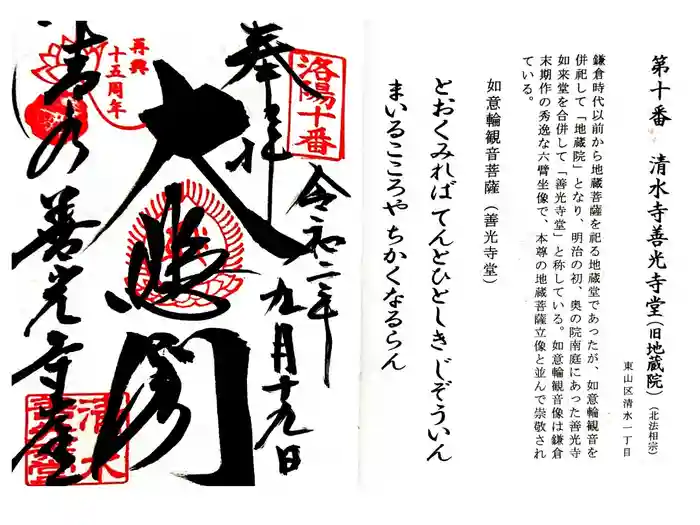 第十番 清水寺善光寺堂(旧地蔵院)(北法相宗)
東山区清水一丁目
鎌倉時代以前から地蔵菩薩を祀る地蔵堂であったが、如意輪観音を
併祀して「地蔵院」となり、明治の初、奥の院南庭にあった善光寺
如来堂を合併して「善光寺堂」と称している。如意輪観音像は鎌倉
末期作の秀逸な六臂坐像で、本尊の地蔵菩薩立像と並んで崇敬され
ている。
如意輪観音菩薩(善光寺堂)
とおくみれば てんとひとしき じぞういん
まいるこころや ちかくなるらん
洛陽十番
奉拝
令和二年九月十九日
大悲閣
再興
十五周年
清水善光寺堂
清水